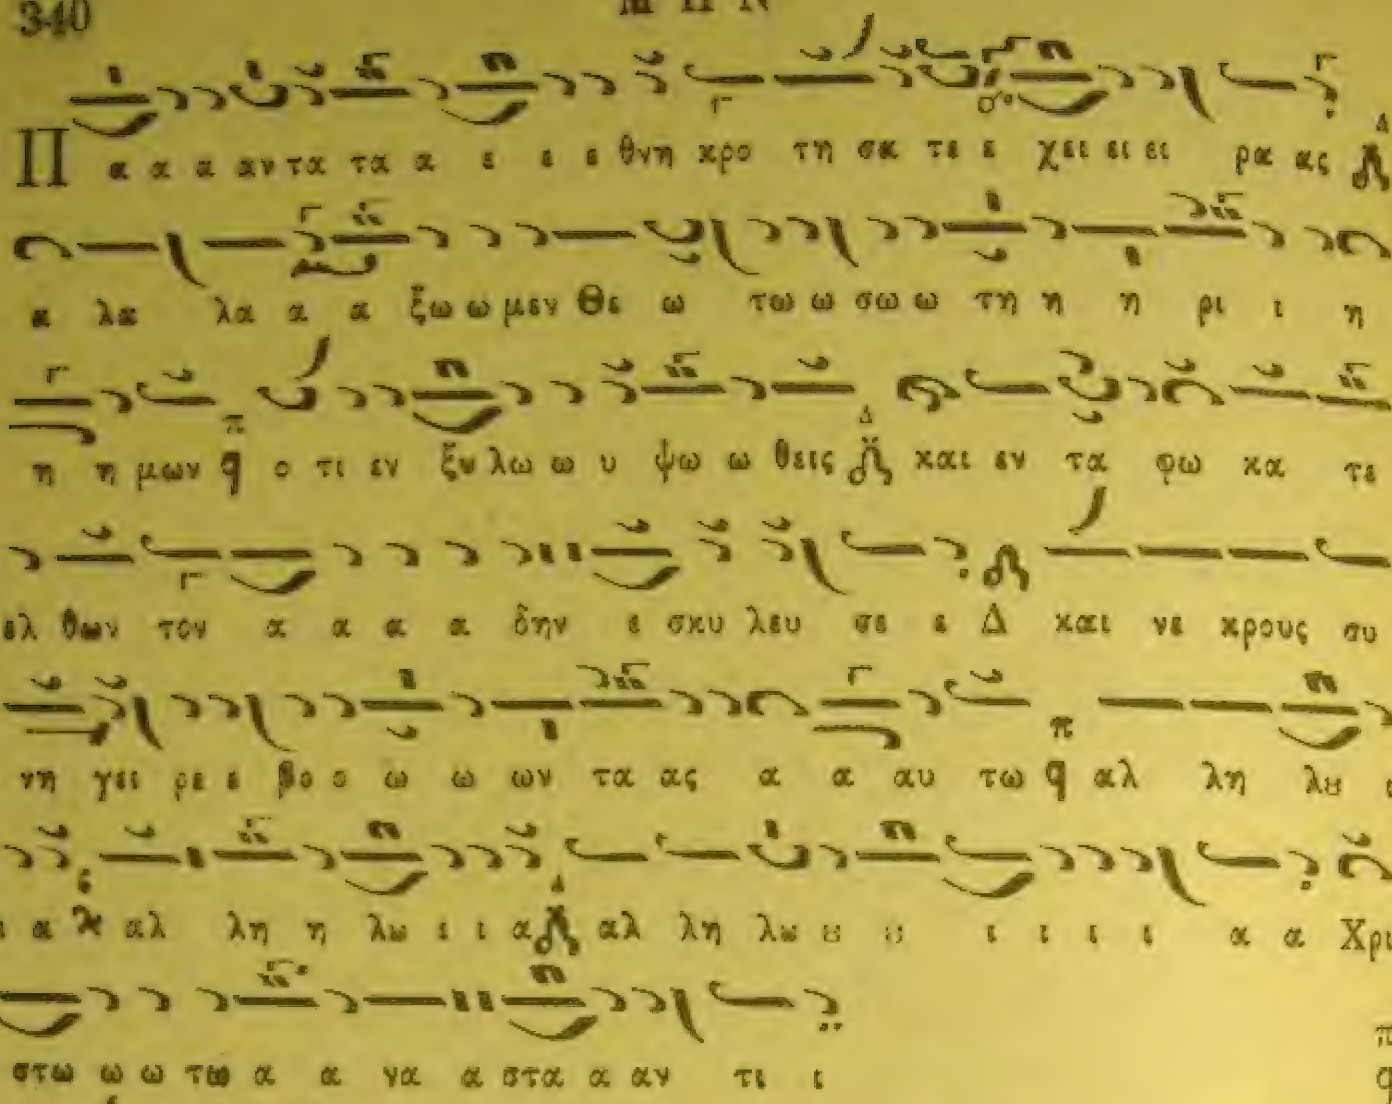 340
Π α α α αν τα τα α ε ε ε θνη κρο τη σα τε ε χει ει ει ρα ας Δ
α λα λα α α ξω ω μεν Θε ω τω ω σω ω τη η η ρι ι η
η η μων π q ο τι εν ξυ λω ω υ ψω ω θεις Δ και εν τα φω κα τε
ελ θων τον α α α α δην ε σκυ λευ σε ε Δ και νε κρους συ
νη γει ρε ε βο ο ω ω ων τα ας α α αυ τω π q αλ λη λȣ
ι α αλ λη η λω ι ι α Δ αλ λη λω ι ι ι ι α α Χρι
στω ω ω τω α α να α στα α αν τι ι